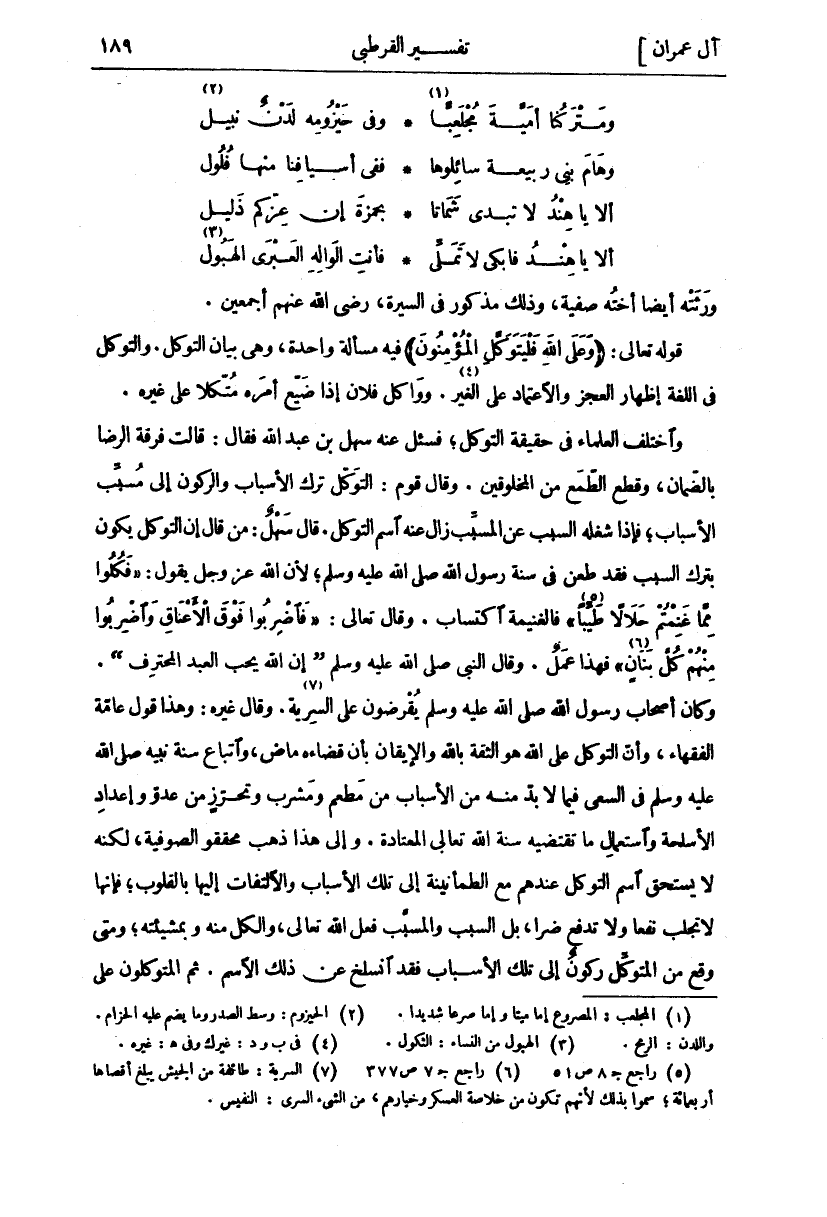 آل عمران ] تفســـير القرطبى ١٨٩
ومَــتْرَكُنا أمَيَّــةَ مُجْلَعِبًّا (١) * وفى حَيْزُومِه لَدْنٌ نبيــل (٢)
وهَامَ بَنِى ربيعــــة سائلوها * ففى أســـيافنا منهــا فُلُول
ألا يا هِنْدُ لا تبــدى شَمَاتا * بحمزَةَ إن عِزّكم ذَليــل
ألا يا هِنْـــدُ فابكى لا تَمَلِّى * فأنتِ الوَالِهِ العَــبْرَى الهَبُول (٣)
ورَثَتْه أيضا أختُه صفية، وذلك مذكور فى السيرة، رضى الله عنهم أجمعين .
قوله تعالى: ﴿وَعَلَى اللهِ فَلْيَتَوَكَّلِ الْمُؤْمِنُونَ﴾ فيه مسألة واحدة، وهى بيان التوكل. والتوكل
فى اللغة إظهار العجز والاعتماد على الغير (٤) . ووَاكل فلان إذا ضَيّع أمرَه مُتّكلا على غيره .
وآختلف العلماء فى حقيقة التوكل؛ فسئل عنه سهل بن عبد الله فقال : قالت فرقة الرضا
بالضّمان، وقطع الطّمَع من المخلوقين . وقال قوم : التوَكّل ترك الأسباب والركون إلى مُسبِّب
الأسباب؛ فإذا شغله السبب عن المسبِّب زال عنه آسم التوكل. قال سَهْلٌ: من قال إن التوكل يكون
بترك السبب فقد طعن فى سنة رسول الله صلى الله عليه وسلم؛ لأن الله عز وجل يقول: «فَكُلُوا
مِمَّا غَنِمْتُمْ حَلَالًا طَيِّبًا» (٥) فالغنيمة آكتساب . وقال تعالى : «فَآضْرِبُوا فَوْقَ الْأَعْنَاقِ وَآضْرِبُوا
مِنْهُمْ كُلَّ بَنَانٍ» (٦) فهذا عملٌ . وقال النبى صلى الله عليه وسلم ” إن الله يحب العبد المحترف “ .
وكان أصحاب رسول الله صلى الله عليه وسلم يُقْرضون على السرِية (٧). وقال غيره : وهذا قول عامّة
الفقهاء ، وأنّ التوكل على الله هو الثقة بالله والإيقان بأن قضاءه ماض، وآتباع سنة نبيه صلى الله
عليه وسلم فى السعى فيما لا بدّ منــه من الأسباب من مَطعم ومَشرب وتحــرّزٍ من عدوّ وإعدادِ
الأسلحة وآستعمالِ ما تقتضيه سنة الله تعالى المعتادة . وإلى هذا ذهب محققو الصوفية، لكنه
لا يستحق آسم التوكل عندهم مع الطمأنينة إلى تلك الأسباب والآلتفات إليها بالقلوب؛ فإنها
لا تجلب نفعا ولا تدفع ضرا، بل السبب والمسبَّب فعل الله تعالى، والكل منه وبمشيئته؛ ومتى
وقع من المتوكِّل ركونٌ إلى تلك الأســباب فقد آنسلخ عن ذلك الآسم . ثم المتوكلون على
(١) المجلعب : المصروع إما ميتا وإما صرعا شديدا . (٢) الحيزوم : وسط الصدر وما يضم عليه الحزام .
واللدن : الرمح . (٣) الهبول من النساء : الثكول . (٤) فى ب و د : غيرك وفى ه : غيره .
(٥) راجع جـ ٨ ص ٥١ (٦) راجع جـ ٧ ص ٣٧٧ (٧) السرية : طائفة من الجيش يبلغ أقصاها
أربعمائة ؛ سموا بذلك لأنهم تكون من خلاصة العسكر وخيارهم، من الشىء السرى : النفيس .